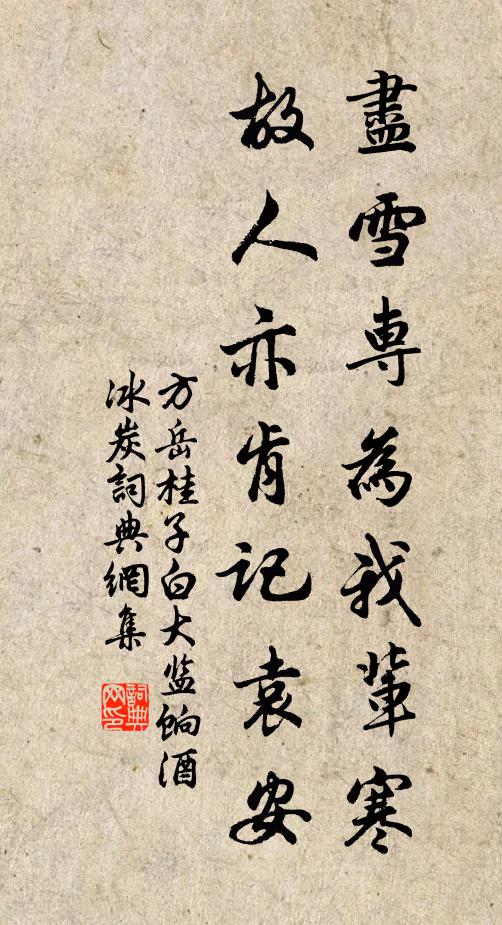 盡雪専為我輩寒
故人亦肯記袁安
方岳桂子白大监饷酒
冰炭詞典網集
詞典网印